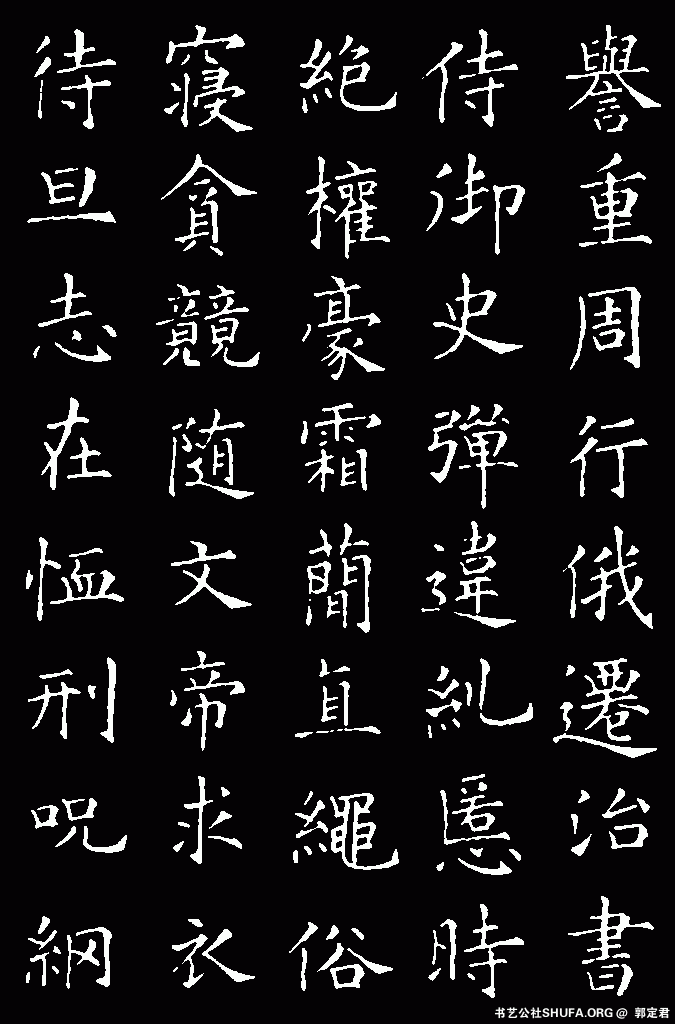 譽重周行俄遷治書
侍御史彈違糺慝時
絶權豪霜簡直繩俗
寢貪競随文帝求衣
待旦志在恤刑呪網
书艺公社SHUFA.ORG @ 郭定君